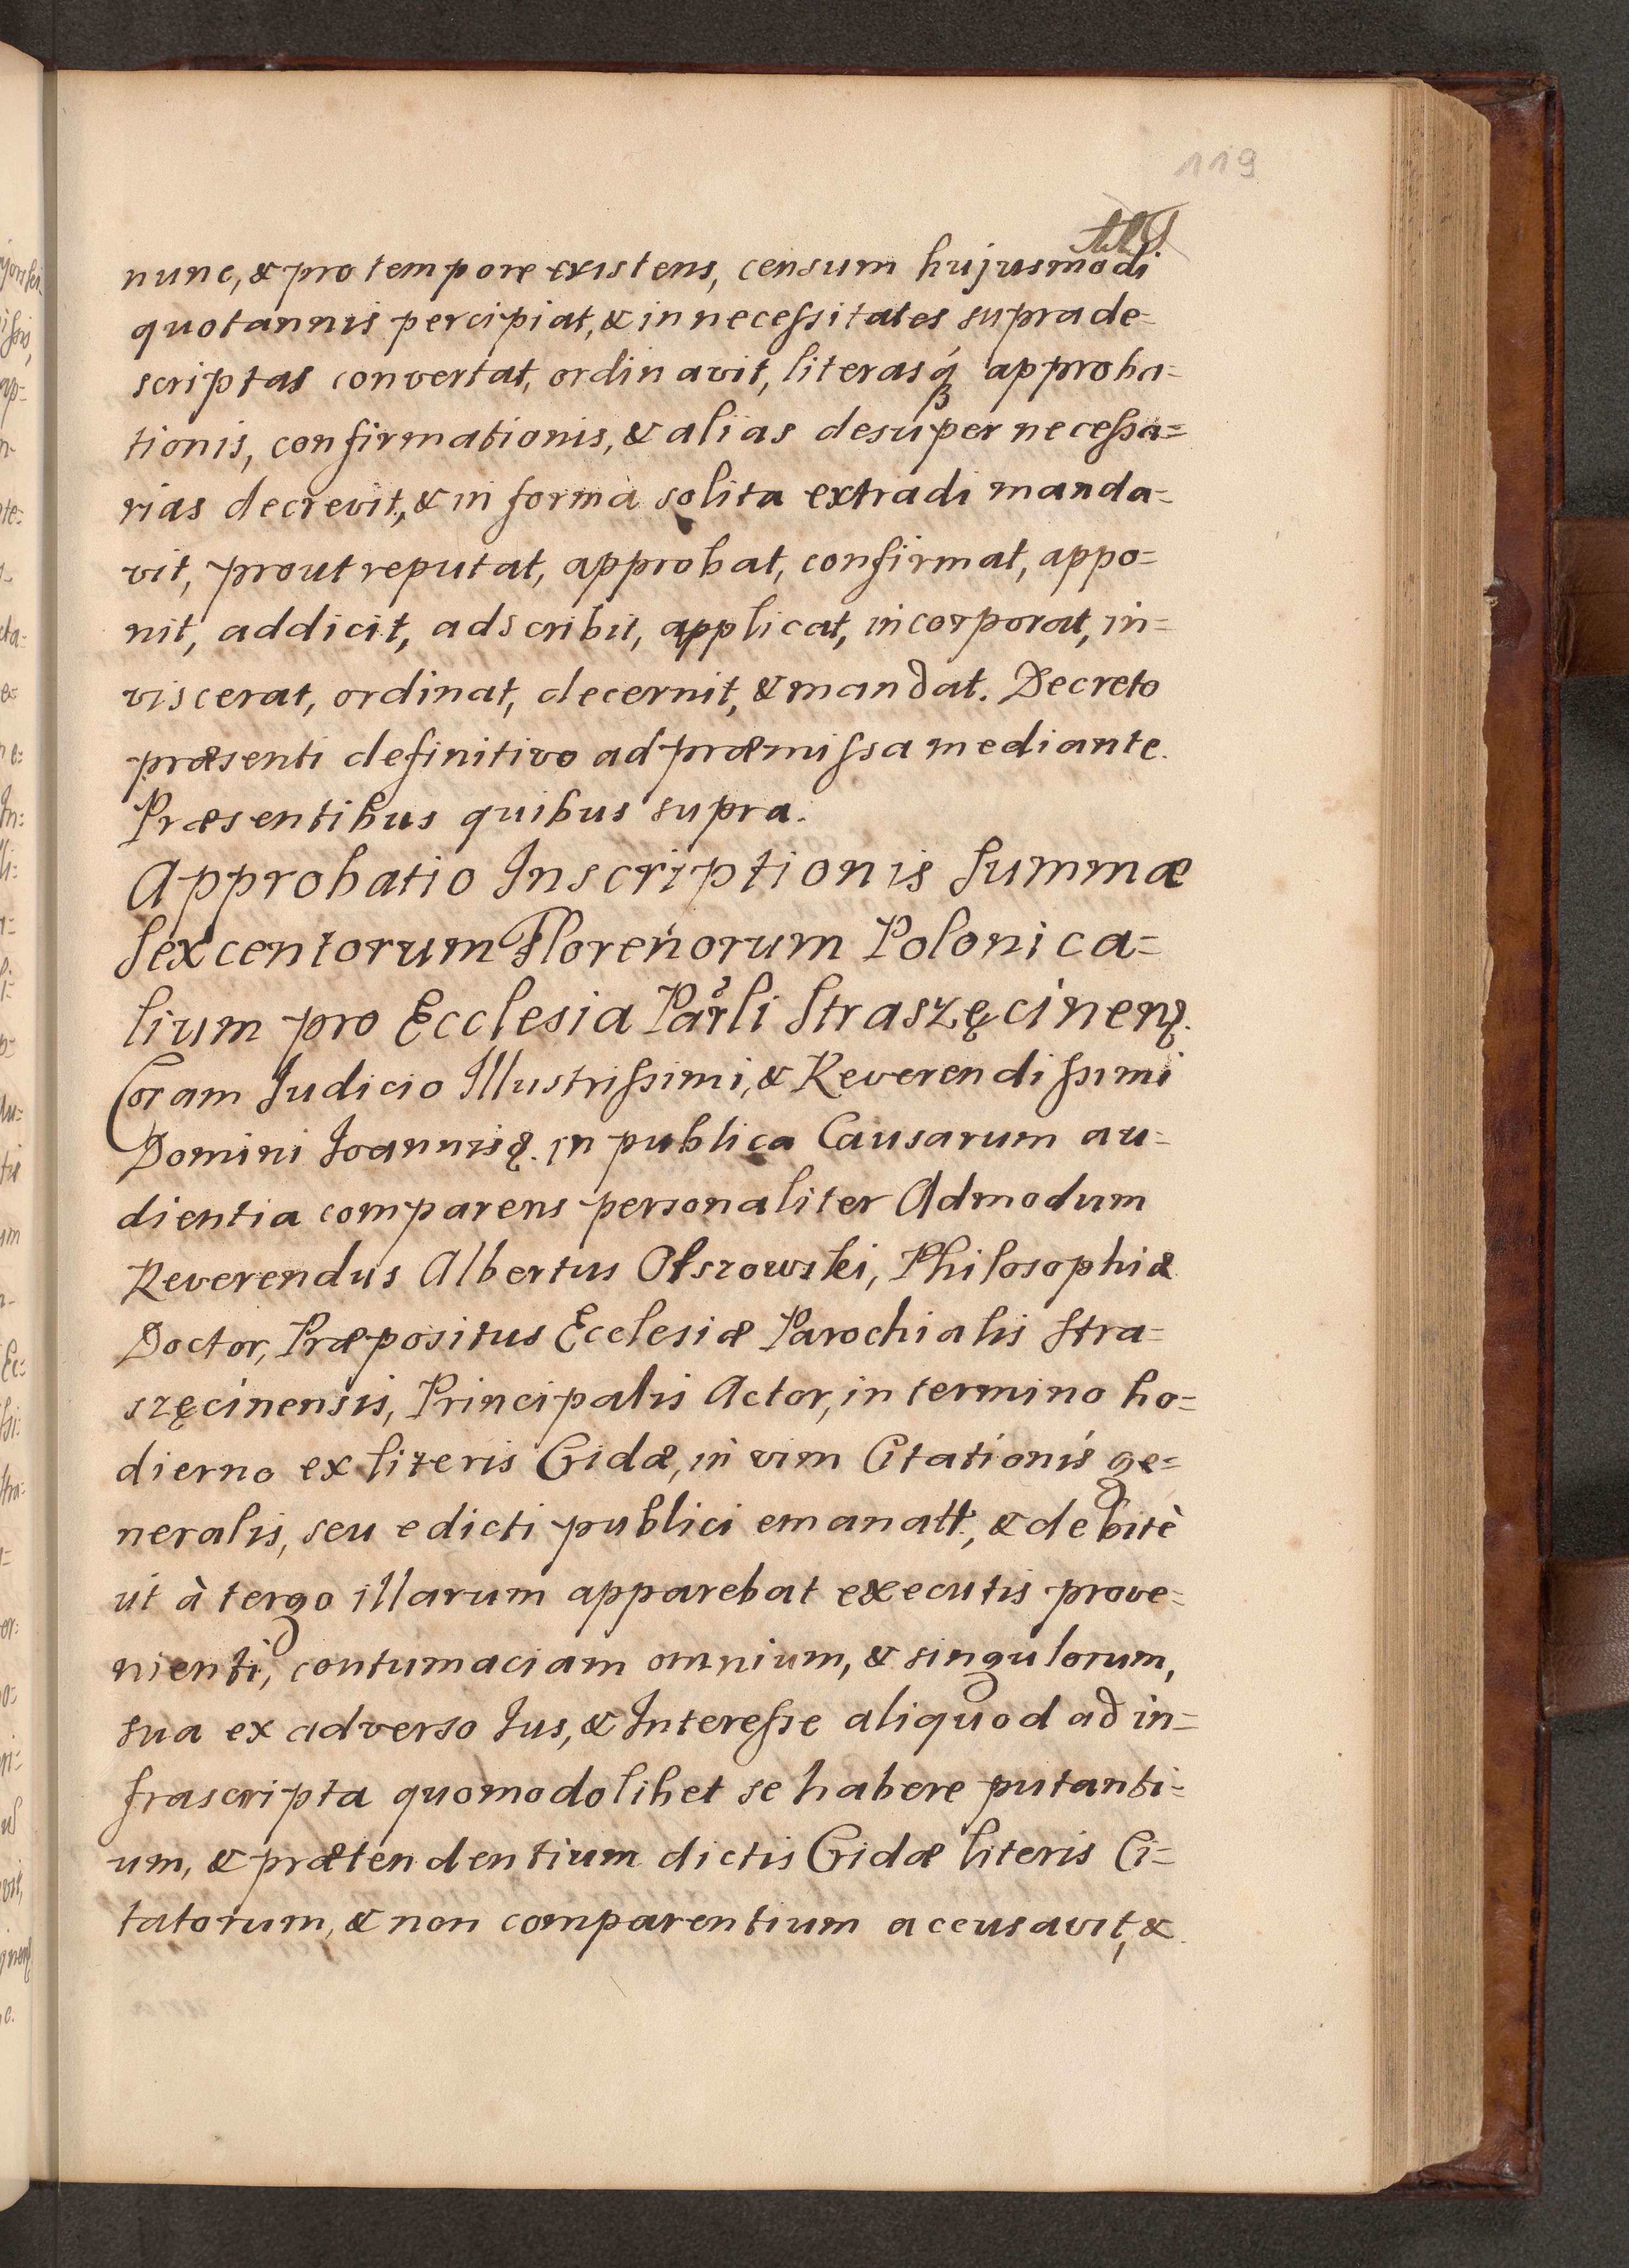 119
nunc, & pro tempore existens, censum hujusmodi
quotannis percipiat, & in necessitates suprade=
scriptas convertat, ordinavit, literasq́ approba=
tionis, confirmationis, & alias desuper necessa=
rias decrevit, & in formâ solita extradi manda=
vit, prout reputat, approbat, confirmat, appo=
nit, addicit, adscribit, applicat, incorporat, in=
viscerat, ordinat, decernit, & mandat. Decreto
præsenti definitivo ad præmissa mediante.
Præsentibus quibus supra.
Approbatio Inscriptionis Summæ
Sexcentorum Florenorum Polonica=
lium pro Ecclesia Parli Straszęcinen.
Coram Judicio Illustrissimi, & Reverendissimi
Domini Joannis. in publica Causarum au=
dientia comparens personaliter Admodum
Reverendus Albertus Olszowski, Philosophiæ
Doctor, Præpositus Ecclesiæ Parochialis Stra=
szęcinensis, Principalis Actor, in termino ho=
dierno ex literis Cridæ, in vim Citationis ge=
neralis, seu edicti publici emanatt., & debitè
ut à tergo illarum apparebat executis prove=
nienti, contumaciam omnium, & singulorum,
sua ex adverso Jus, & Interesse aliquod ad in=
frascripta quomodolibet se habere putanti=
um, & prætendentium dictis Cridæ literis Ci=
tatorum, & non comparentium accusavit, &